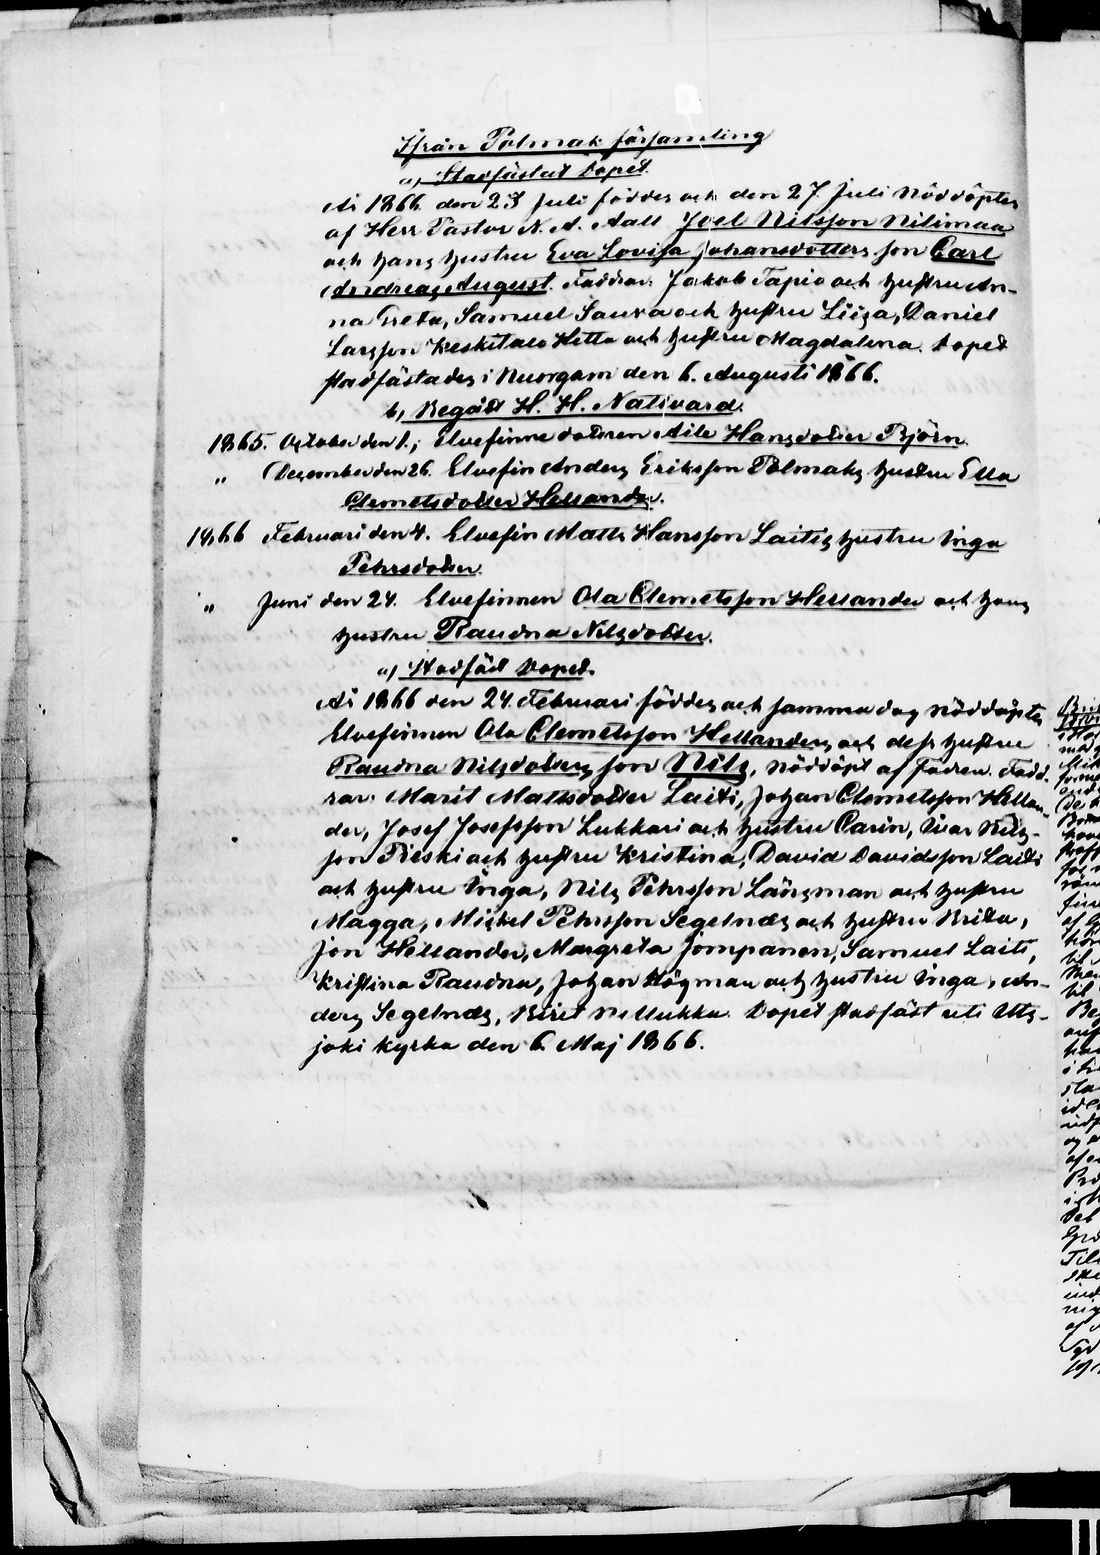 Ifrån Polmak församling
a, Stadfästat Dopet.
År 1866 den 23 Juli föddes och den 27 Juli Nöddöptes
af Herr Pastor N. A. Aall Joel Nilsson Nilimaa
och hans hustru Eva Lovisa Johansdotters son Carl
Andreas August. Faddrar: Jakob Tapio och hustru An-
na Greta, Samuel Saura och hustru Liisa, Daniel
Larsson Keskitalo Hetta och hustru Magdalena. Dopet
stadfästades i Nuorgam den 6. Augusti 1866.
b, Begått H. H. Nattvard.
1865. October den 1., Elvefinne dottren Aile Hansdotter Björn.
" December den 26. Elvefin Anders Eriksson Polmaks hustru Ella
Clemetsdotter Hellander.
1866 Februari den 4. Elvefin Matts Hansson Laitis hustru Inga
Pehrsdotter.
" Juni den 24. Elvefinnen Ola Clemetsson Hellander och hans
hustru Raudna Nilsdotter.
a, Stadfäst Dopet.
År 1866 den 24. Februari föddes och samma dag nöddöptes
Elvefinnen Ola Clemetsson Hellanders och dess hustru
Raudna Nilsdotters son Nils, nöddöpt af Fadren. Fadd-
rar: Marit Mattsdotter Laiti, Johan Clemetsson Hellan-
der, Josef Josefsson Lukkari och hustru Carin, Ivar Nils-
son Pieski och hustru Kristina, David Davidsson Laiti
och hustru Inga, Nils Pehrsson Länsman och hustru
Magga, Mickel Pehrsson Segelnæs och hustru Brita,
Jon Hellander, Margreta Jompanen, Samuel Laiti,
Kristina Raudna, Johan Högman och hustru Inga, An-
ders Segelnæs, Birit Dopet stadfäst uti Uts-
joki kyrka den 6. Maj 1866.